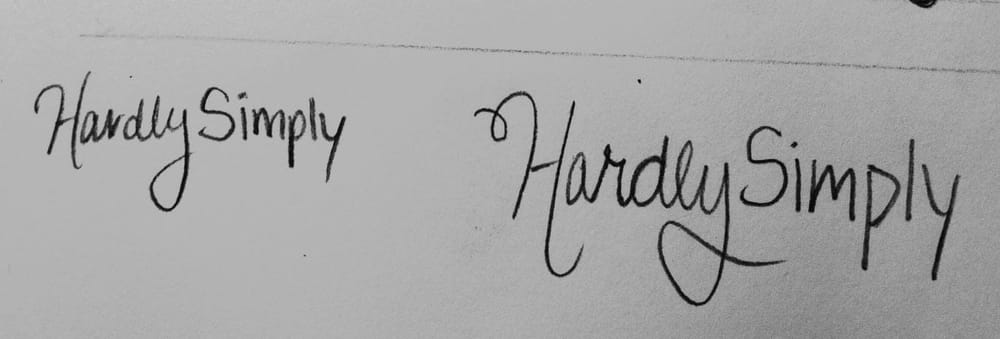 HardlySimply
HardlySimply